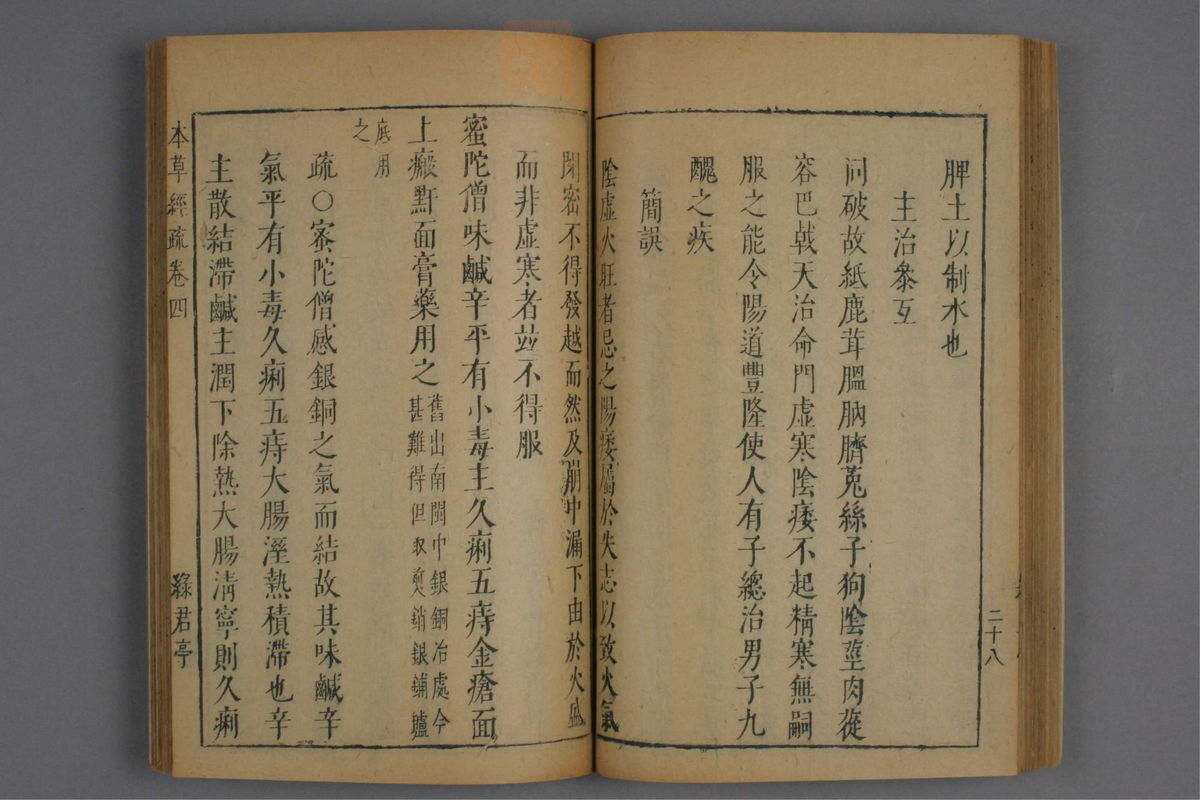 脾土以制水也
主治參互
同破故紙鹿茸膃肭臍菟絲子狗陰莖肉蓯
容巴戟天治命門虛寒陰痿不起精寒無嗣
服之能令陽道豐隆使人有子總治男子九
醜之疾
簡誤
陰虛火旺者忌之陽痿屬於失志以致火氣
閉密不得發越而然及崩中漏下由於火盛
而非虛寒者竝不得服
蜜陀僧味鹹辛平有小毒主久痢五痔金瘡面
上瘢䵟面膏藥用之
舊出南閩中銀銅冶處今
甚難得但取煎銷銀鋪爐
底用
之
疏○蜜陀僧感銀銅之氣而結故其味鹹辛
氣平有小毒久痢五痔大腸溼熱積滯也辛
主散結滯鹹主潤下除熱大腸淸寧則久痢
二十八
本草經疏卷四
綠君亭